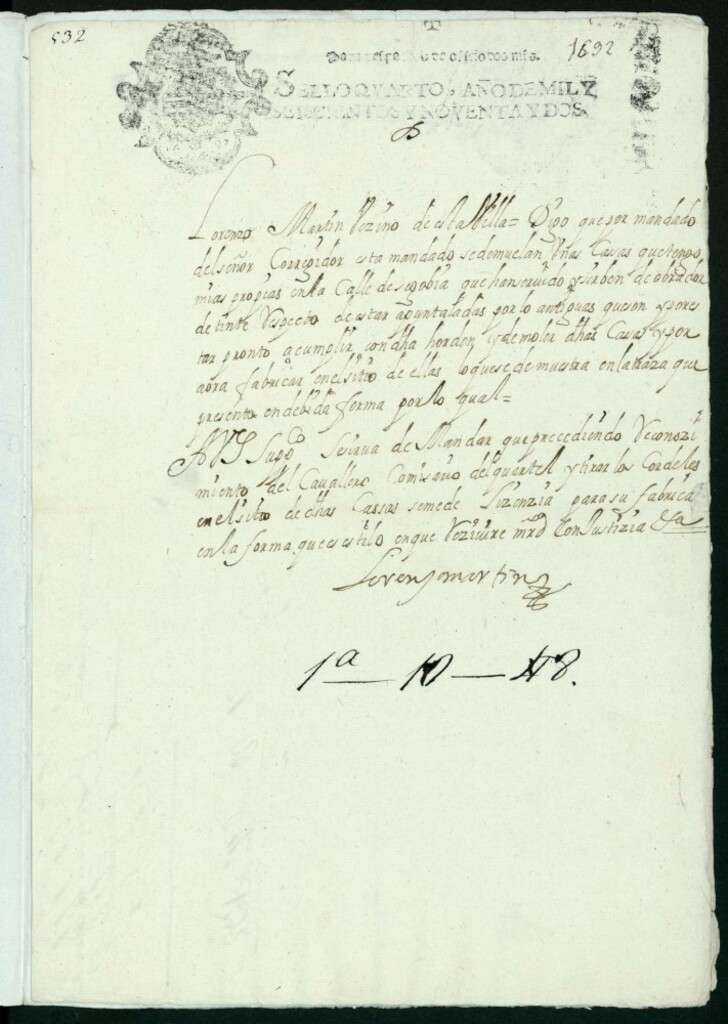 532
1692
SELLO QVARTO, AÑO DE MIL Y
SEISCIENTOS Y NOVENTA Y DOS
Lorenzo Martin Vezino de esta Villa = Digo que por mandado
del señor Corregidor esta mandado se demuelan Unas Casas que tengo
mias propias en la Calle de segobia que han seruido y sirben de obrador
de tinte Respecto de estar apuntaladas por lo antiguas que son y por es
tar pronto a cumplir con dha horden y demoler dhas Casas y por
aora fabricar en el sitio de ellas lo que se de muestra en la traza que
presento en debida forma por lo qual =
A VS Suppco Se sirua de Mandar que precediendo Reconozi
miento del Cauallero Comisario del quartel y tirar los Cordeles
en el sitio de dhas Cassas se me de Lizenzia para su fabrica
en la forma que es estilo en que Reziuire mrd con Justizia &a
Lorenzo martin
1ª — 10 — 48.